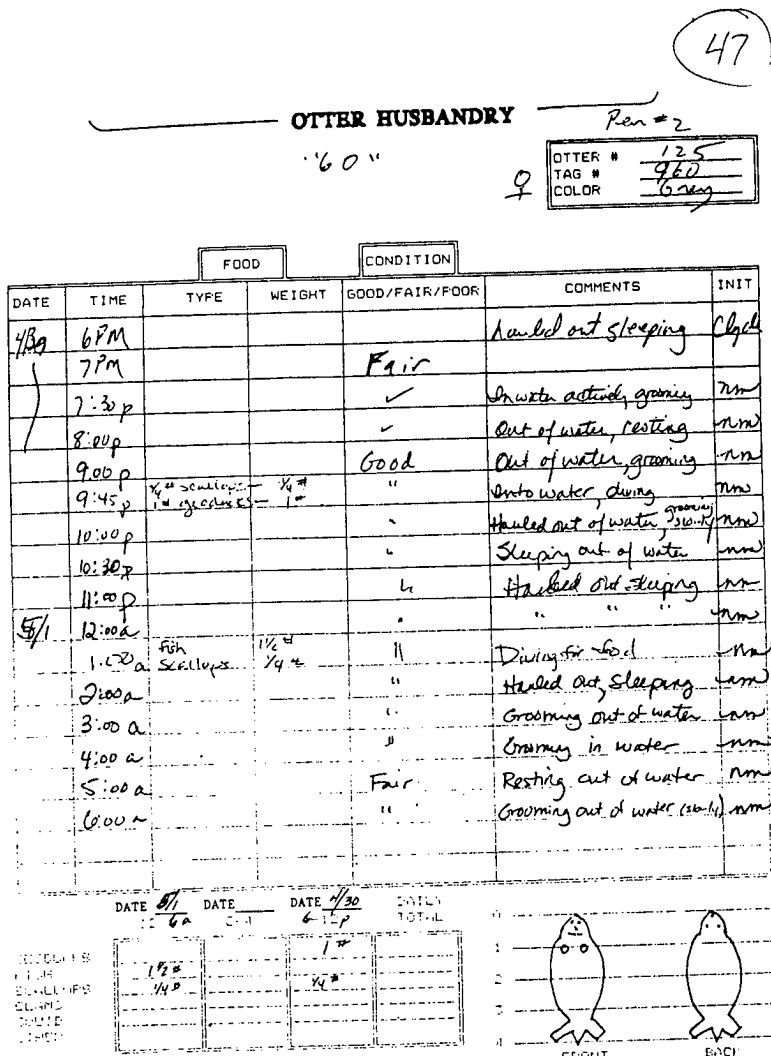 47
OTTER HUSBANDRY
Pen #2
"60"
♀
OTTER # 125
TAG # 960
COLOR Grey
FOOD CONDITION
DATE TIME TYPE WEIGHT GOOD/FAIR/POOR COMMENTS INIT
6PM hauled out sleeping Clyde
7PM Fair
7:30 p ✓ In water actively grooming nm
8:00 p ✓ Out of water, resting nm
9:00 p Good Out of water, grooming nm
9:45 p 1/4 # scallops — 1/4 # " Into water, diving nm
1 # — 1 #
10:00 p " Hauled out of water, grooming nm
10:30 p " Sleeping out of water nm
11:00 p " Hauled out sleeping nm
5/1 12:00 a " " " " nm
fish 1 1/2 #
a Scallops 1/4 # " Diving for food nm
2:00 a " Hauled Out, Sleeping nm
3:00 a " Grooming out of water nm
4:00 a " Grooming in water nm
5:00 a Fair Resting out of water nm
6:00 a " Grooming out of water nm
DATE 5/1 DATE DATE 4/30 DAILY
6a 6-12p TOTAL
1 #
FISH 1 1/2 #
SCALLOPS 1/4 # 1/4 #
CLAMS
SQUID
OTHER
0
1
2
3
4
FRONT BACK